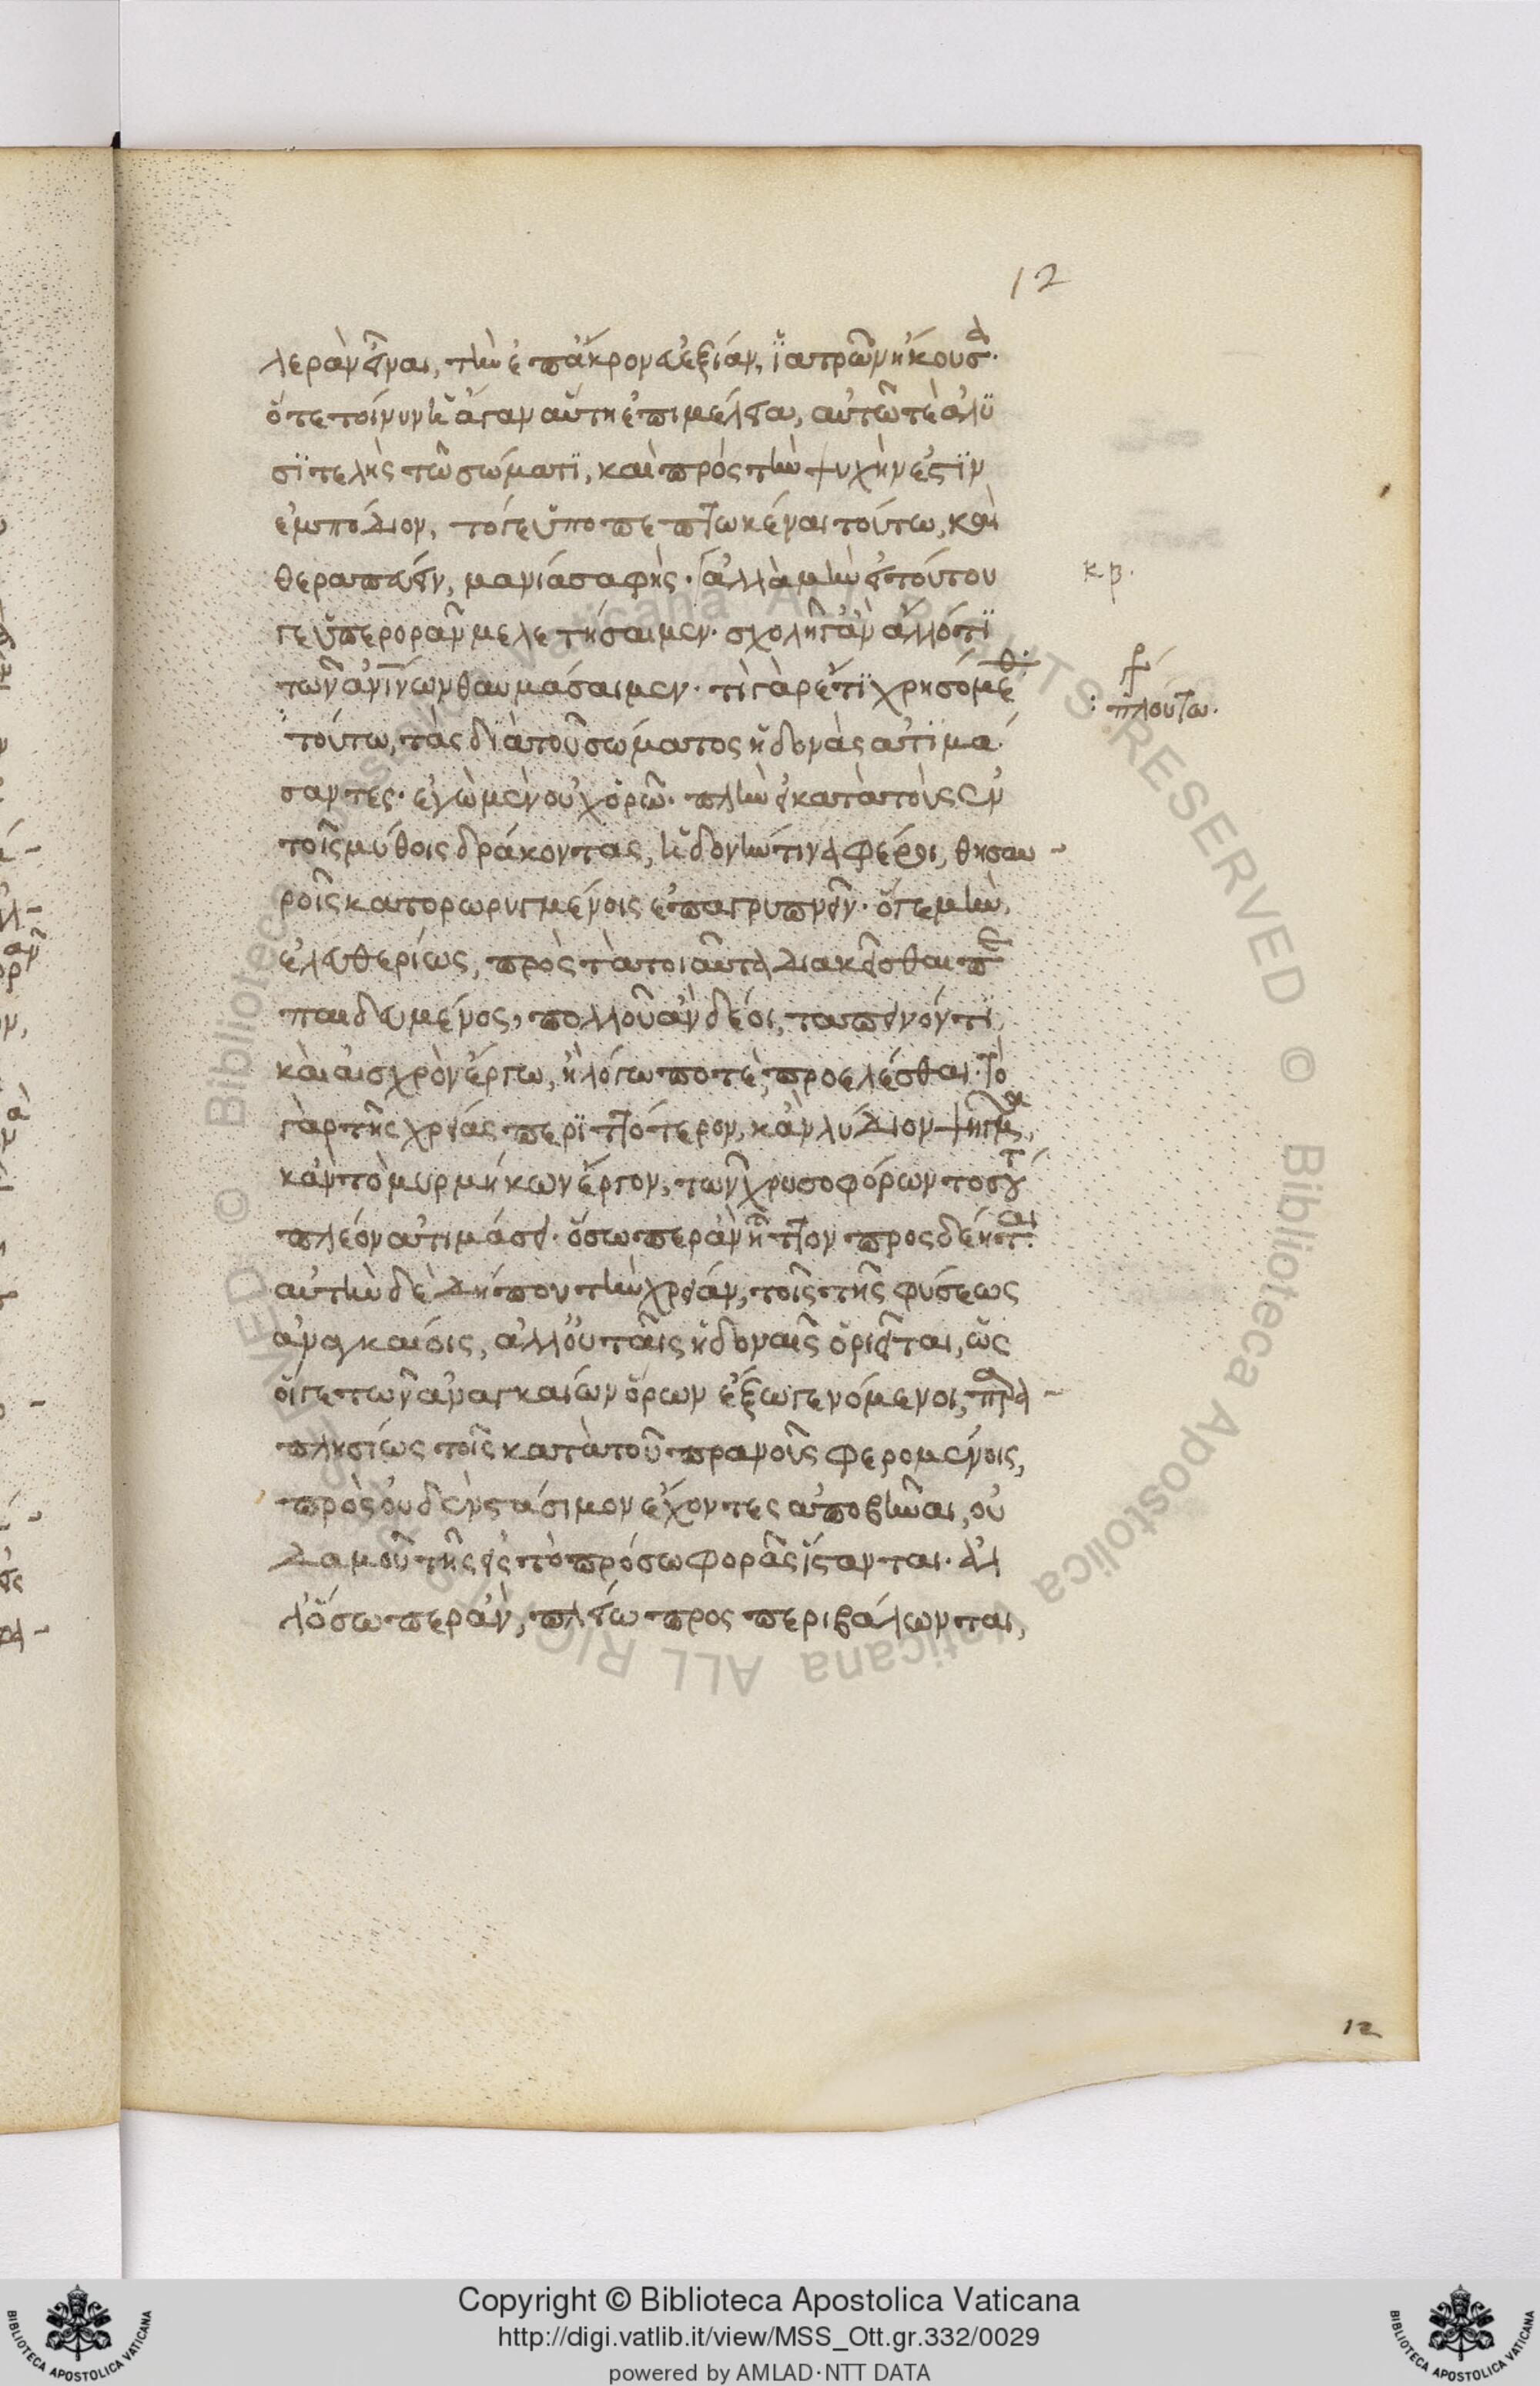 12
λερὰν εἶναι, τὴν ἐπάκρον εὐεξίαν, ϊατρῶν ἤκουσα.
ὅτε τοίνυν ἡ ἄγαν αὕτη ἐπιμέλεια, αὐτῶ τὲ ἀλυ
σϊτελὴς τῶ σώματϊ, καὶ πρὸς τὴν ψυχήν ἐστϊν
ἐμπόδιον, τόγε ὑποπεπτωκέναι τούτω, καὶ
θεραπεύειν, μανία σαφής. ἀλλὰ μὴν εἰ τούτου
γε ὑπερορᾶν μελετήσαιμεν. σχολῆ γ᾽ ἂν ἄλλό τϊ
τῶν ἀνίνων θαυμάσαιμεν. τί γὰρ ἔτϊ χρησόμεθ
πλούτω.
τούτω, τὰς διὰ τοῦ σώματος ἡδονὰς ἀτϊμά
σαντες. ἐγὼ μὲν οὐχ ὁρῶ. πλὴν εἰ κατὰ τοὺς ἐν
τοῖς μύθοις δράκοντας, ἡδονήν τινα φέροι, θησαυ
ροῖς κατορωρυγμένοις ἐπαγρυπνεῖν. ὅγε μὴν,
ἐλευθερίως, πρὸς τὰ τοιαῦτα διακεῖσθαι π
παιδευμένος, πολλοῦ ἂν δέοι, ταπεινόν τϊ
καὶ αἰσχρὸν ἔργω, ἢ λόγω ποτὲ, προελέσθαι. τὸ
γὰρ τῆς χρείας περϊττότερον, κἂν λύδιον ψῆγμα,
κἂν τὸ μυρμήκων ἔργον, τῶν χρυσοφόρων τοσούτ
πλέον ἀτιμάσει. ὅσωπερ ἂν ἧττον προσδέηται.
αὐτὴν δὲ δήπου τὴν χρείαν, τοῖς τῆς φύσεως
ἀναγκαίοις, ἀλλ᾽ οὐ ταῖς ἡδοναῖς ὁριεῖται, ὡς
οἵγε τῶν ἀναγκαίων ὅρων ἔξω γενόμενοι, παρα
πλησίως τοῖς κατὰ τοῦ πρανοῦς φερομένοις,
πρὸς οὐδὲν στάσιμον ἔχοντες ἀποβῆναι, οὐ
δαμοῦ τῆς εἰς τὸ πρόσω φορᾶς ἵστανται. ἀλ
λ᾽ ὅσωπερ ἂν, πλείω προσπεριβάλωνται,
κβ.
12
Copyright © Biblioteca Apostolica Vaticana
http://digi.vatlib.it/view/MSS_Ott.gr.332/0029
powered by AMLAD·NTT DATA